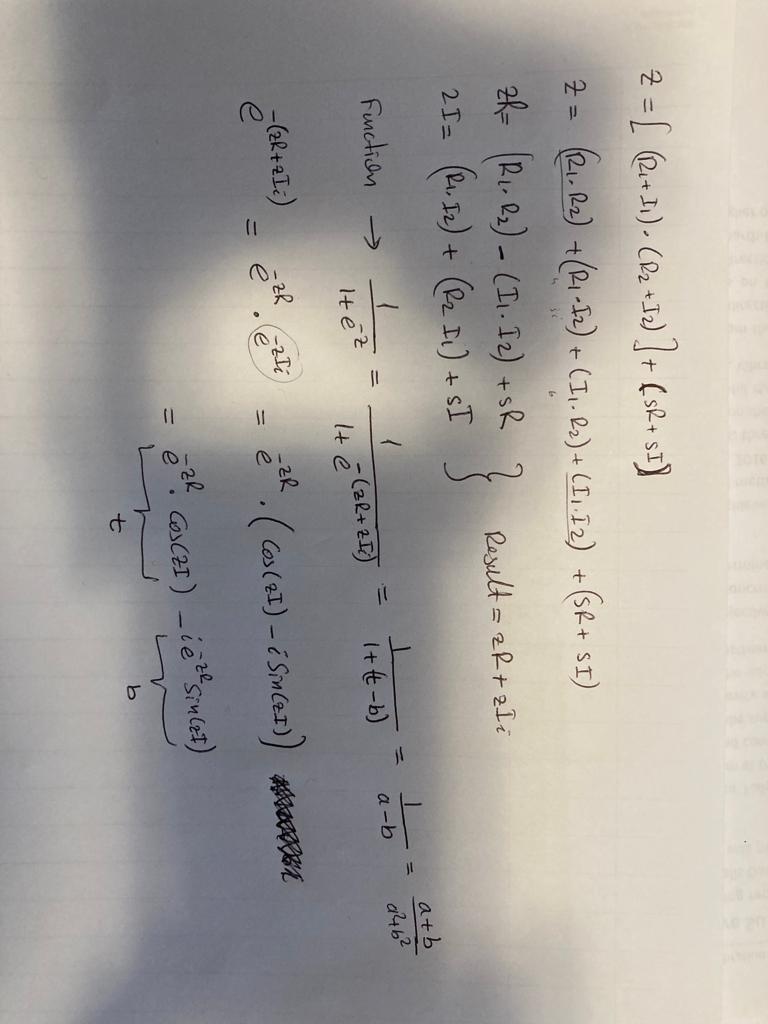 z = [ (R₁+I₁) · (R₂+I₂) ] + (sR + sI)
z = (R₁·R₂) + (R₁·I₂) + (I₁·R₂) + (I₁·I₂) + (sR + sI)
zR = (R₁·R₂) − (I₁·I₂) + sR } Result = zR + zIi
zI = (R₁·I₂) + (R₂ I₁) + sI
Function → 1/(1+e^-z) = 1/(1+e^-(zR+zIi)) = 1/(1+(t−b)) = 1/(a−b) = (a+b)/(a²+b²)
e^-(zR+zIi) = e^-zR · e^-zIi = e^-zR · (Cos(zI) − i Sin(zI))
= e^-zR · Cos(zI) − i e^-zR Sin(zI)
t b